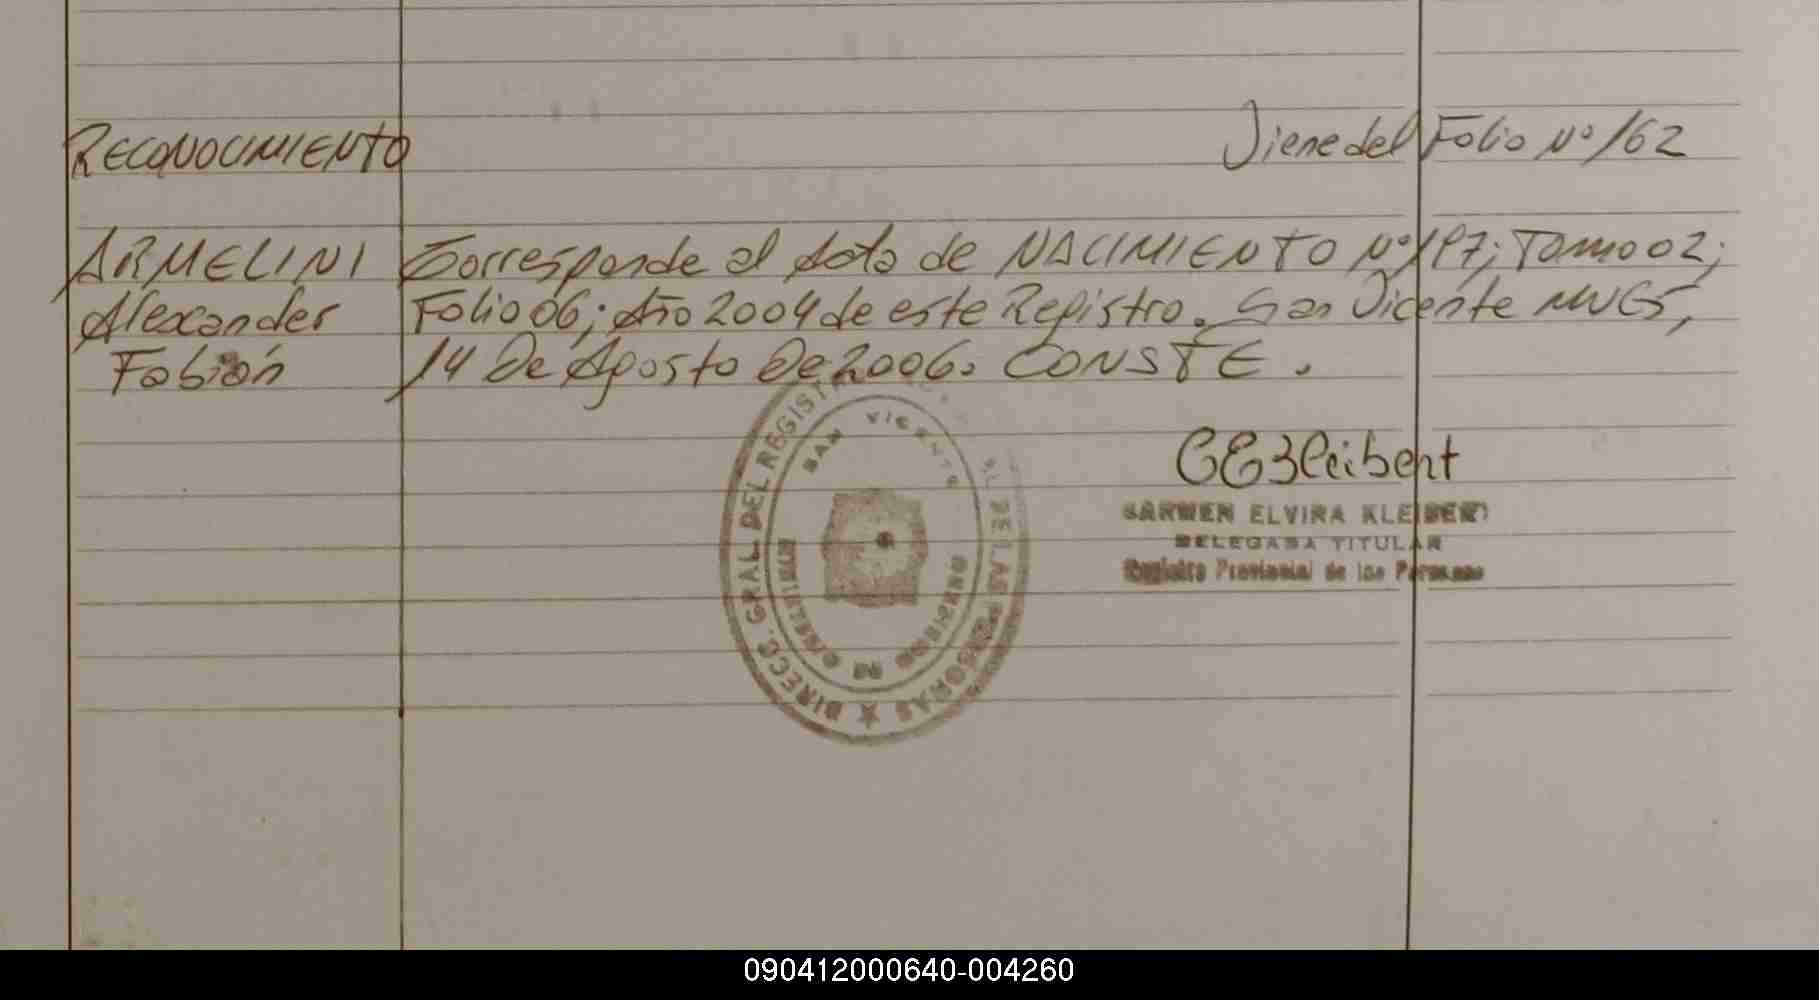 RECONOCIMIENTO
Viene del Folio Nº 162
ARMELINI Corresponde al Acta de NACIMIENTO Nº 197; Tomo 02;
Alexander Folio 06; Año 2004 de este Registro. San Vicente MVGS,
Fabián 14 De Agosto De 2006. CONSTE.
CEKleibert
CARMEN ELVIRA KLEIBERT
DELEGADA TITULAR
Registro Provincial de las Personas
DIRECC. GRAL. DEL REGISTR DE LAS PERSONAS
SAN VICENTE
090412000640-004260